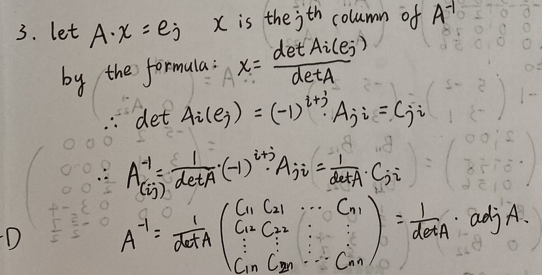 3. let A·x = ej x is the jth column of A⁻¹
by the formula: x = det Ai(ej) / det A
∴ det Ai(ej) = (-1)^i+j · Aji = Cji
∴ A⁻¹(ij) = 1/detA · (-1)^i+j · Aji = 1/detA · Cji
-D A⁻¹ = 1/detA ( C11 C21 ··· Cn1
C12 C22 ⋮
⋮ ⋮ ⋮
C1n C2n ··· Cnn ) = 1/detA · adj A.